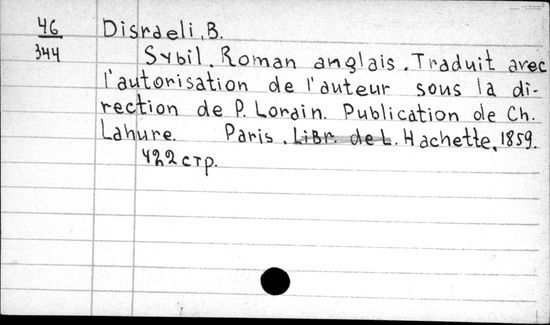 46 Disraeli, B.
344 Sybil. Roman anglais. Traduit avec
l'autorisation de l'auteur sous la di-
rection de P. Lorain. Publication de Ch.
Lahure. Paris. Libr. de L. Hachette, 1859.
422 стр.